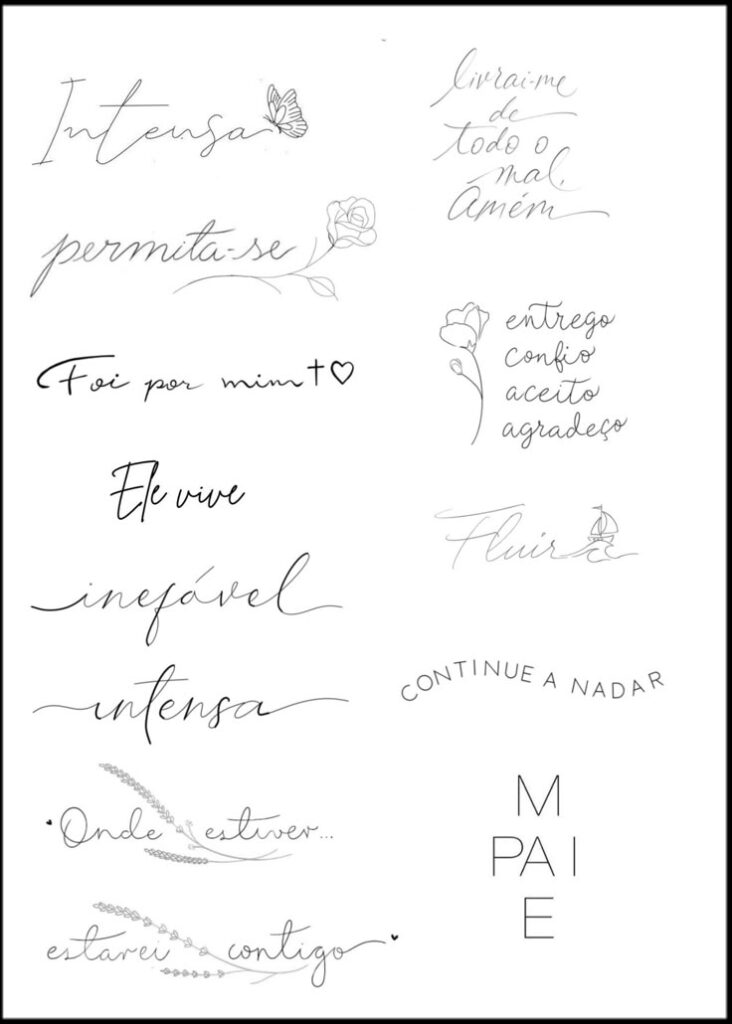 Intensa
permita-se
Foi por mim
Ele vive
inefável
intensa
Onde estiver...
estarei contigo
livrai-me
de
todo o
mal.
Amém
entrego
confio
aceito
agradeço
Fluir
CONTINUE A NADAR
M
PAI
E